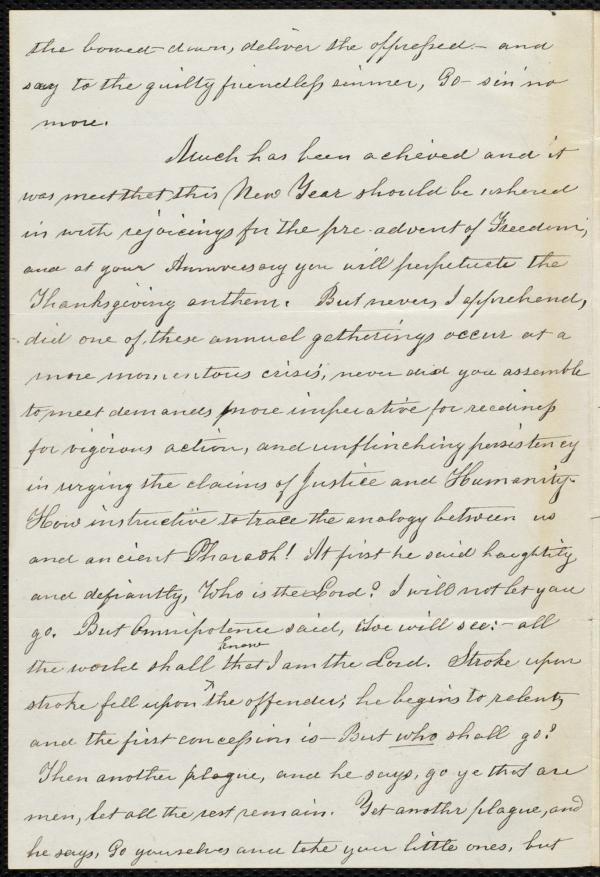 the bowed-down, deliver the oppressed – and
say to the guilty friendless sinner, Go – sin no
more.
Much has been achieved and it
was meet that this New Year should be ushered
in with rejoicings for the pre-advent of Freedom,
and at your Anniversary you will perpetuate the
Thanksgiving anthem. But never, I apprehend,
did one of these annual gatherings occur at a
more momentous crisis, never did you assemble
to meet demands more imperative for readiness
for vigorous action, and unflinching persistency
in urging the claims of Justice and Humanity.
How instructive to trace the analogy between us
and ancient Pharaoh! At first he said haughtily
and defiantly, Who is the Lord? I will not let you
go. But Omnipotence said, We will see: – all
the world shall know that I am the Lord. Stroke upon
stroke fell upon the offender; he begins to relent,
and the first concession is – But who shall go?
Then another plague, and he says, go ye that are
men, let all the rest remain. Yet anothr plague, and
he says, Go yourselves and take your little ones, but